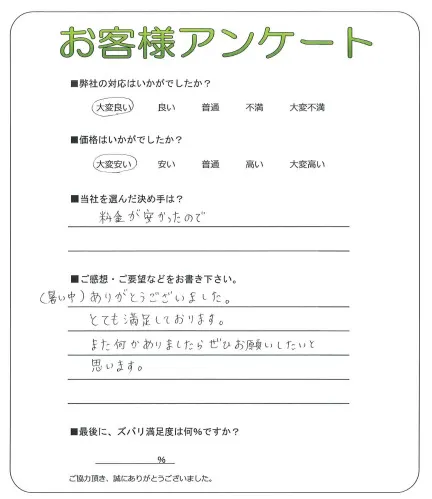 お客様アンケート
■弊社の対応はいかがでしたか？
大変良い 良い 普通 不満 大変不満
■価格はいかがでしたか？
大変安い 安い 普通 高い 大変高い
■当社を選んだ決め手は？
料金が安かったので
■ご感想・ご要望などをお書き下さい。
（暑い中）ありがとうございました。
とても満足しております。
また何かありましたらぜひお願いしたいと
思います。
■最後に、ズバリ満足度は何%ですか？
%
ご協力頂き、誠にありがとうございました。